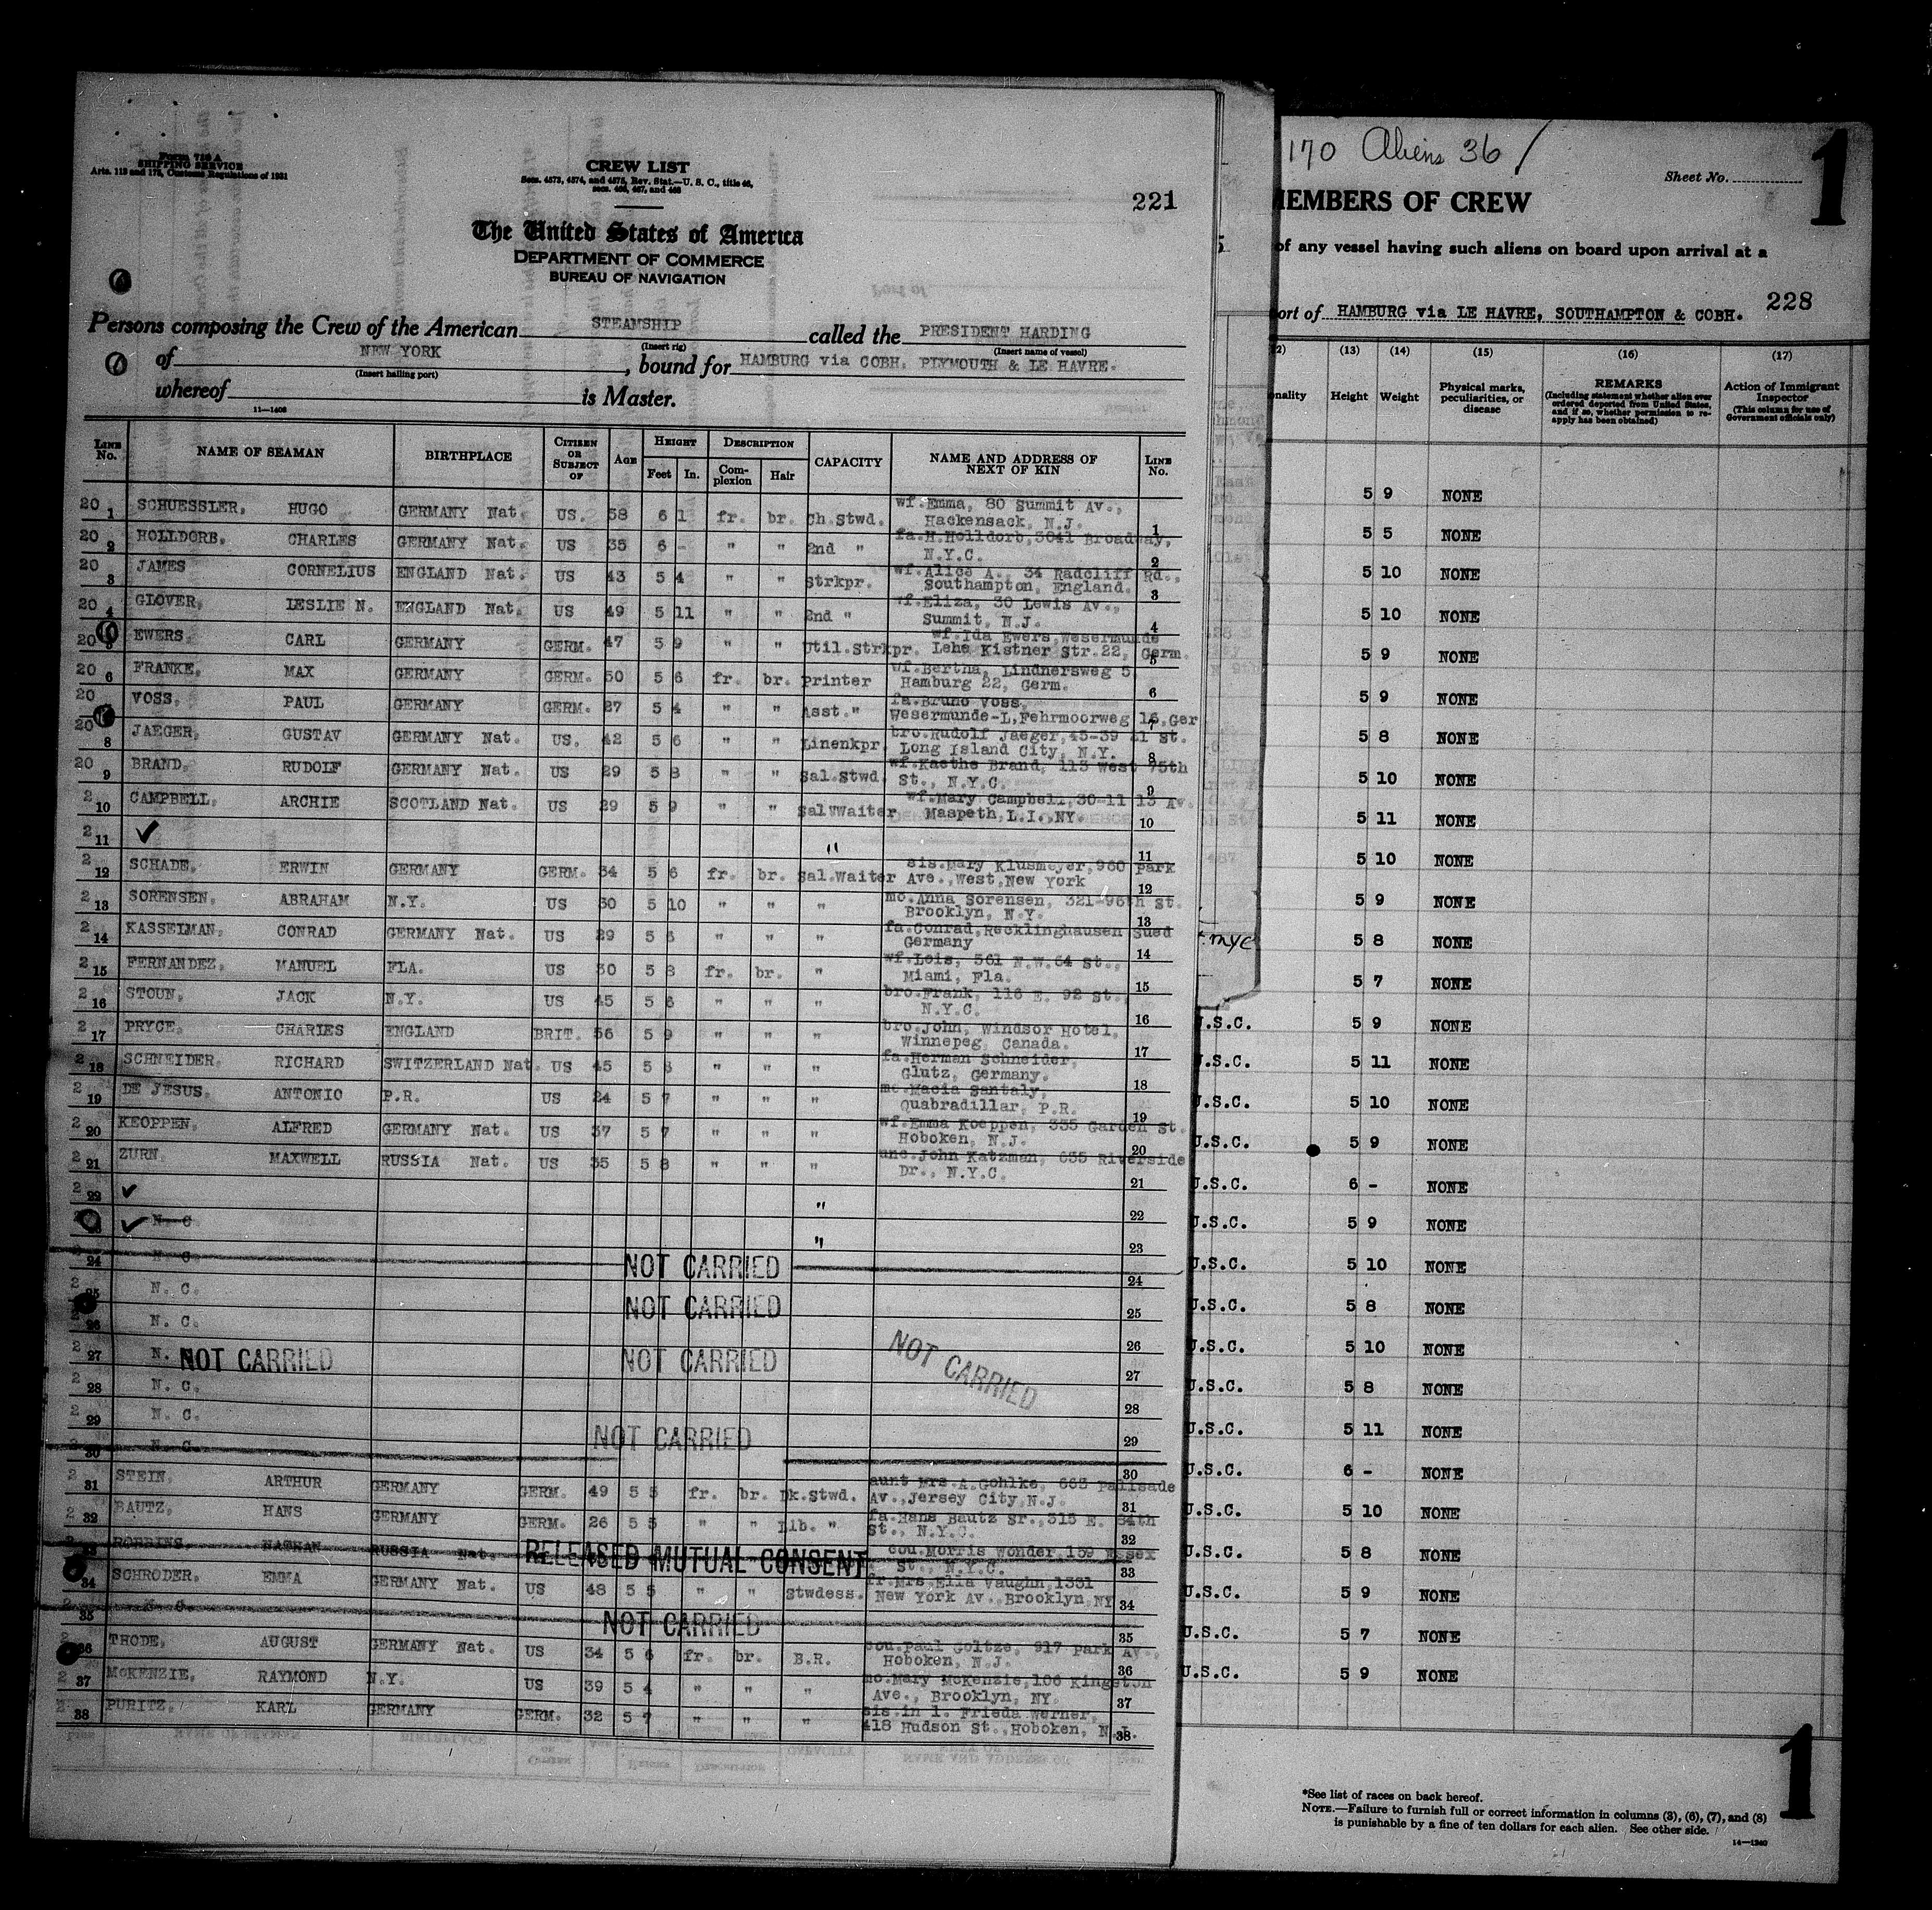 Form 710 A
SHIPPING SERVICE
Arts. 113 and 175, Customs Regulations of 1931
CREW LIST
Secs. 4573, 4574, and 4575, Rev. Stat.—U. S. C., title 46,
secs. 466, 467, and 468
221
The United States of America
DEPARTMENT OF COMMERCE
BUREAU OF NAVIGATION
Persons composing the Crew of the American STEAMSHIP called the PRESIDENT HARDING
(Insert rig) (Insert name of vessel)
of NEW YORK, bound for HAMBURG via COBH. PLYMOUTH & LE HAVRE.
(Insert hailing port)
whereof is Master.
11—1408
LINE No. NAME OF SEAMAN BIRTHPLACE CITIZEN OR SUBJECT OF AGE HEIGHT Feet In. DESCRIPTION Complexion Hair CAPACITY NAME AND ADDRESS OF NEXT OF KIN LINE No.
20 1 SCHUESSLER, HUGO GERMANY Nat. US. 58 6 1 fr. br. Ch.Stwd. wf.Emma, 80 Summit Av., Hackensack, N.J. 1
20 2 HOLLDORB, CHARLES GERMANY Nat. US 35 6 - " " 2nd " fa.H.Holldorb,3041 Broadway, N.Y.C. 2
20 3 JAMES CORNELIUS ENGLAND Nat. US 43 5 4 " " Strkpr. wf.Alice A., 34 Radcliff Rd., Southampton, England. 3
20 4 GLOVER, LESLIE N. ENGLAND Nat. US 49 5 11 " " 2nd " wf.Eliza, 30 Lewis Av., Summit, N.J. 4
20 5 EWERS, CARL GERMANY GERM. 47 5 9 " " Util.Strkpr. wf.Ida Ewers,Wesermunde Lehe Kistner Str.22, Germ. 5
20 6 FRANKE, MAX GERMANY GERM. 50 5 6 fr. br. Printer wf.Bertha, Lindnersweg 5 Hamburg 22, Germ. 6
20 VOSS, PAUL GERMANY GERM. 27 5 4 " " Asst." fa.Bruno Voss, Wesermunde-L,Fehrmoorweg 16,Ger 7
20 8 JAEGER, GUSTAV GERMANY Nat. US. 42 5 6 " " Linenkpr. bro.Rudolf Jaeger,45-39 41 St. Long Island City, N.Y. 8
20 9 BRAND, RUDOLF GERMANY Nat. US 29 5 8 " " Sal.Stwd. wf.Kaethe Brand, 113 West 75th St., N.Y.C. 9
2 10 CAMPBELL, ARCHIE SCOTLAND Nat. US 29 5 9 " " Sal.Waiter wf.Mary Campbell,30-11 13 Av. Maspeth,L.I.,NY. 10
2 11 ✓ " 11
2 12 SCHADE, ERWIN GERMANY GERM. 34 5 6 fr. br. Sal.Waiter sis.Mary Klusmeyer,960 Park Ave.,West,New York 12
2 13 SORENSEN, ABRAHAM N.Y. US 30 5 10 " " " mo.Anna Sorensen, 321-96th St. Brooklyn, N.Y. 13
2 14 KASSELMAN, CONRAD GERMANY Nat. US 29 5 6 " " " fa.Conrad,Recklinghausen Sued Germany 14
2 15 FERNANDEZ, MANUEL FLA. US 30 5 8 fr. br. " wf.Lois, 361 N.W.64 St., Miami, Fla. 15
2 16 STOUN, JACK N.Y. US 45 5 6 " " " bro.Frank, 116 E. 92 St., N.Y.C. 16
2 17 PRYCE, CHARLES ENGLAND BRIT. 56 5 9 " " " bro.John, Windsor Hotel, Winnepeg, Canada. 17
2 18 SCHNEIDER, RICHARD SWITZERLAND Nat. US 45 5 8 " " " fa.Herman Schneider, Glutz, Germany. 18
2 19 DE JESUS, ANTONIO P.R. US 24 5 7 " " " mo.Macia Santaly, Quabradillar, P.R. 19
2 20 KEOPPEN, ALFRED GERMANY Nat. US 37 5 7 " " " wf.Emma Koeppen, 335 Garden St. Hoboken, N.J. 20
2 21 ZURN, MAXWELL RUSSIA Nat. US 35 5 8 " " " unc.John Katzman, 635 Riverside Dr., N.Y.C. 21
2 22 ✓ " 22
✓ N. C. " 23
24 N. C. NOT CARRIED 24
2 25 N. C. NOT CARRIED 25
26 N. C. 26
2 27 N. NOT CARRIED NOT CARRIED NOT CARRIED 27
2 28 N. C. 28
2 29 N. C. NOT CARRIED 29
2 30 N. C. 30
2 31 STEIN, ARTHUR GERMANY GERM. 49 5 5 fr. br. Dk.Stwd. aunt Mrs.A.Gohlke, 663 Palisade Av.,Jersey City,N.J. 31
2 32 BAUTZ, HANS GERMANY GERM. 26 5 5 " " Lib. " fa.Hans Bautz Sr.,315 E. 84th St., N.Y.C. 32
33 ROBBINS, NATHAN RUSSIA Nat. RELEASED MUTUAL CONSENT cou.Morris Wonder,159 Essex St., N.Y.C. 33
34 SCHRODER, EMMA GERMANY Nat. US 48 5 5 " " Stwdess. fr.Mrs.Ella Vaughn,1331 New York Av.,Brooklyn,NY 34
2 35 N. C. NOT CARRIED 35
36 THODE, AUGUST GERMANY Nat. US 34 5 6 fr. br. B.R. cou.Paul Goltze, 917 Park Av., Hoboken, N.J. 36
2 37 McKENZIE, RAYMOND N.Y. US 39 5 4 " " " mo.Mary McKenzie,106 Kingston Ave., Brooklyn, NY. 37
2 38 PURITZ, KARL GERMANY GERM. 32 5 7 " " " sis.in l. Frieda Werner, 418 Hudson St.,Hoboken, N.J. 38
170 Aliens 36 /
Sheet No.
1
MEMBERS OF CREW
of any vessel having such aliens on board upon arrival at a
228
ort of HAMBURG via LE HAVRE, SOUTHAMPTON & COBH.
2) (13) (14) (15) (16) (17)
onality Height Weight Physical marks, peculiarities, or disease REMARKS (Including statement whether alien ever ordered deported from United States, and if so, whether permission to reapply has been obtained) Action of Immigrant Inspector (This column for use of Government officials only)
5 9 NONE
5 5 NONE
5 10 NONE
5 10 NONE
5 9 NONE
5 9 NONE
5 8 NONE
5 10 NONE
5 11 NONE
5 10 NONE
5 9 NONE
nyc 5 8 NONE
5 7 NONE
U.S.C. 5 9 NONE
U.S.C. 5 11 NONE
U.S.C. 5 10 NONE
U.S.C. 5 9 NONE
U.S.C. 6 - NONE
U.S.C. 5 9 NONE
U.S.C. 5 10 NONE
U.S.C. 5 8 NONE
U.S.C. 5 10 NONE
U.S.C. 5 8 NONE
U.S.C. 5 11 NONE
U.S.C. 6 - NONE
U.S.C. 5 10 NONE
U.S.C. 5 8 NONE
U.S.C. 5 9 NONE
U.S.C. 5 7 NONE
U.S.C. 5 9 NONE
1
*See list of races on back hereof.
NOTE.—Failure to furnish full or correct information in columns (3), (6), (7), and (8)
is punishable by a fine of ten dollars for each alien. See other side.
14—1240